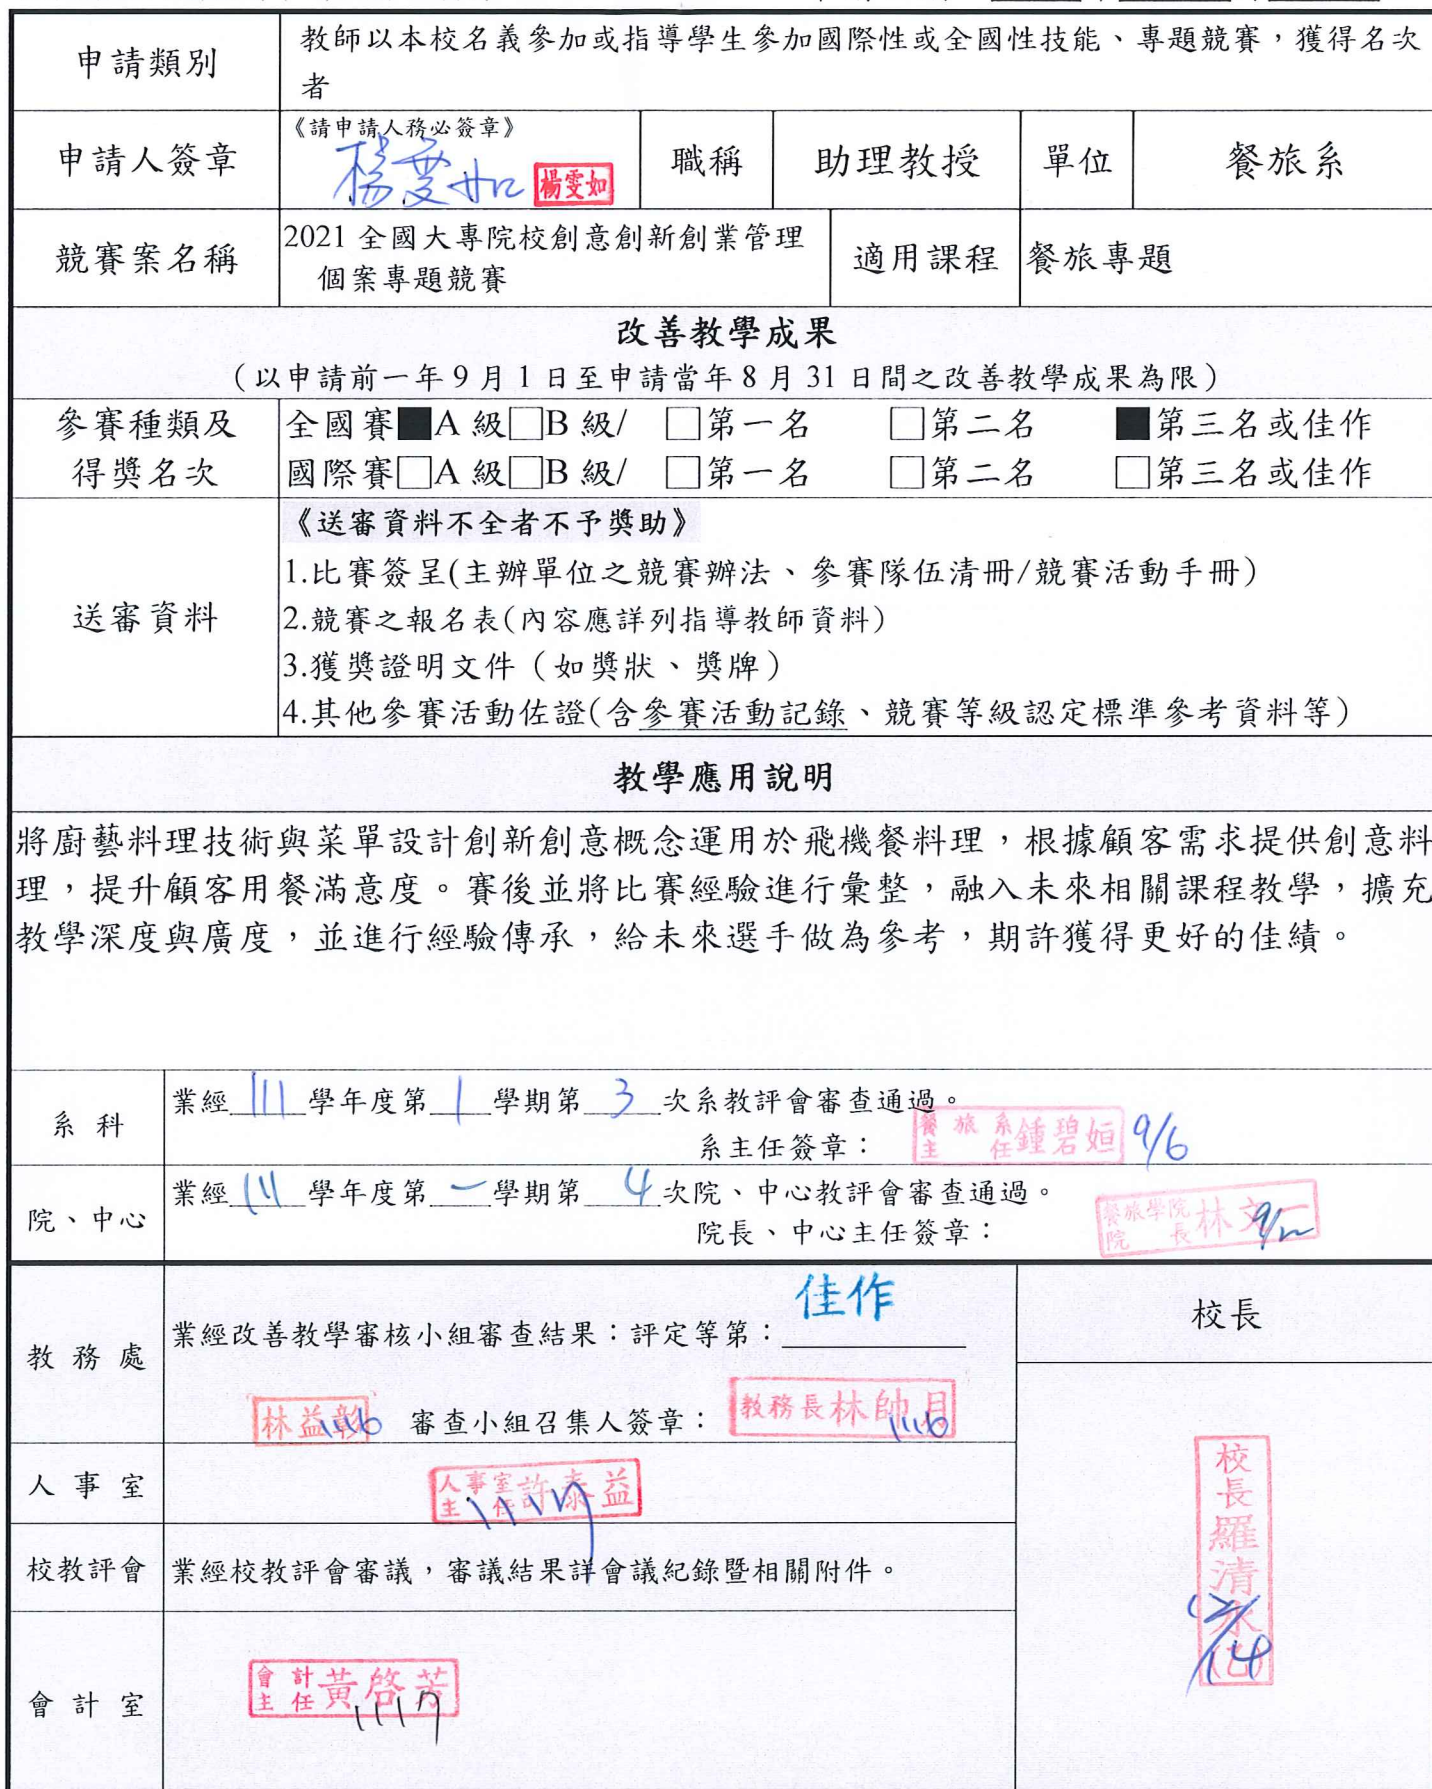 申請類別
教師以本校名義參加或指導學生參加國際性或全國性技能、專題競賽，獲得名次
者
申請人簽章
《請申請人務必簽章》
楊雯如 楊雯如
職稱
助理教授
單位
餐旅系
競賽案名稱
2021 全國大專院校創意創新創業管理
個案專題競賽
適用課程
餐旅專題
改善教學成果
（以申請前一年 9 月 1 日至申請當年 8 月 31 日間之改善教學成果為限）
參賽種類及
得獎名次
全國賽■A 級□B 級/ □第一名 □第二名 ■第三名或佳作
國際賽□A 級□B 級/ □第一名 □第二名 □第三名或佳作
送審資料
《送審資料不全者不予獎助》
1.比賽簽呈(主辦單位之競賽辦法、參賽隊伍清冊/競賽活動手冊)
2.競賽之報名表(內容應詳列指導教師資料)
3.獲獎證明文件（如獎狀、獎牌）
4.其他參賽活動佐證(含參賽活動記錄、競賽等級認定標準參考資料等)
教學應用說明
將廚藝料理技術與菜單設計創新創意概念運用於飛機餐料理，根據顧客需求提供創意料
理，提升顧客用餐滿意度。賽後並將比賽經驗進行彙整，融入未來相關課程教學，擴充
教學深度與廣度，並進行經驗傳承，給未來選手做為參考，期許獲得更好的佳績。
系科
業經 111 學年度第 1 學期第 3 次系教評會審查通過。
系主任簽章： 餐旅系主任鍾碧姮 9/6
院、中心
業經 111 學年度第 一 學期第 4 次院、中心教評會審查通過。
院長、中心主任簽章： 餐旅學院院長林文一
教務處
業經改善教學審核小組審查結果：評定等第： 佳作
林益彰 1116 審查小組召集人簽章： 教務長林帥月 1116
人事室
人事室主任許泰益 1117
校教評會
業經校教評會審議，審議結果詳會議紀錄暨相關附件。
會計室
會計主任黃啓芳 1117
校長
校長羅清水(乙)
12/14